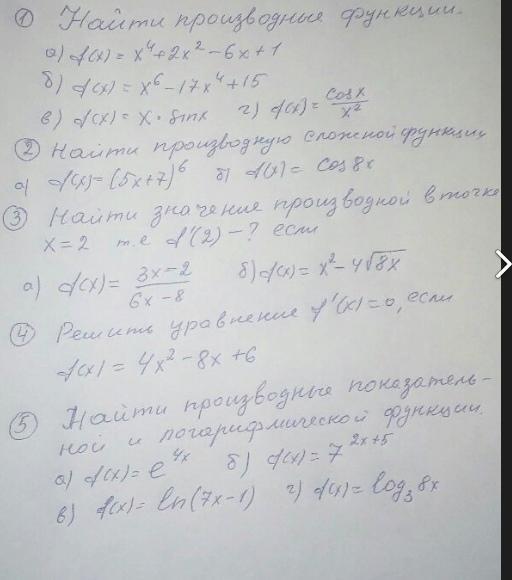 ① Найти производные функции.
а) f(x) = x⁴+2x²-6x+1
б) f(x) = x⁶-17x⁴+15
в) f(x) = x · sinx г) f(x) = cosx/x²
② Найти производную сложной функции
а) f(x) = (5x+7)⁶ б) f(x) = cos8x
③ Найти значение производной в точке
x=2 т.е f'(2) - ? если
а) f(x) = (3x-2)/(6x-8) б) f(x) = x²-4√8x
④ Решить уравнение f'(x)=0, если
f(x) = 4x²-8x+6
⑤ Найти производные показатель-
ной и логарифмической функции.
а) f(x) = e⁴ˣ б) f(x) = 7²ˣ⁺⁵
в) f(x) = ln(7x-1) г) f(x) = log₃8x